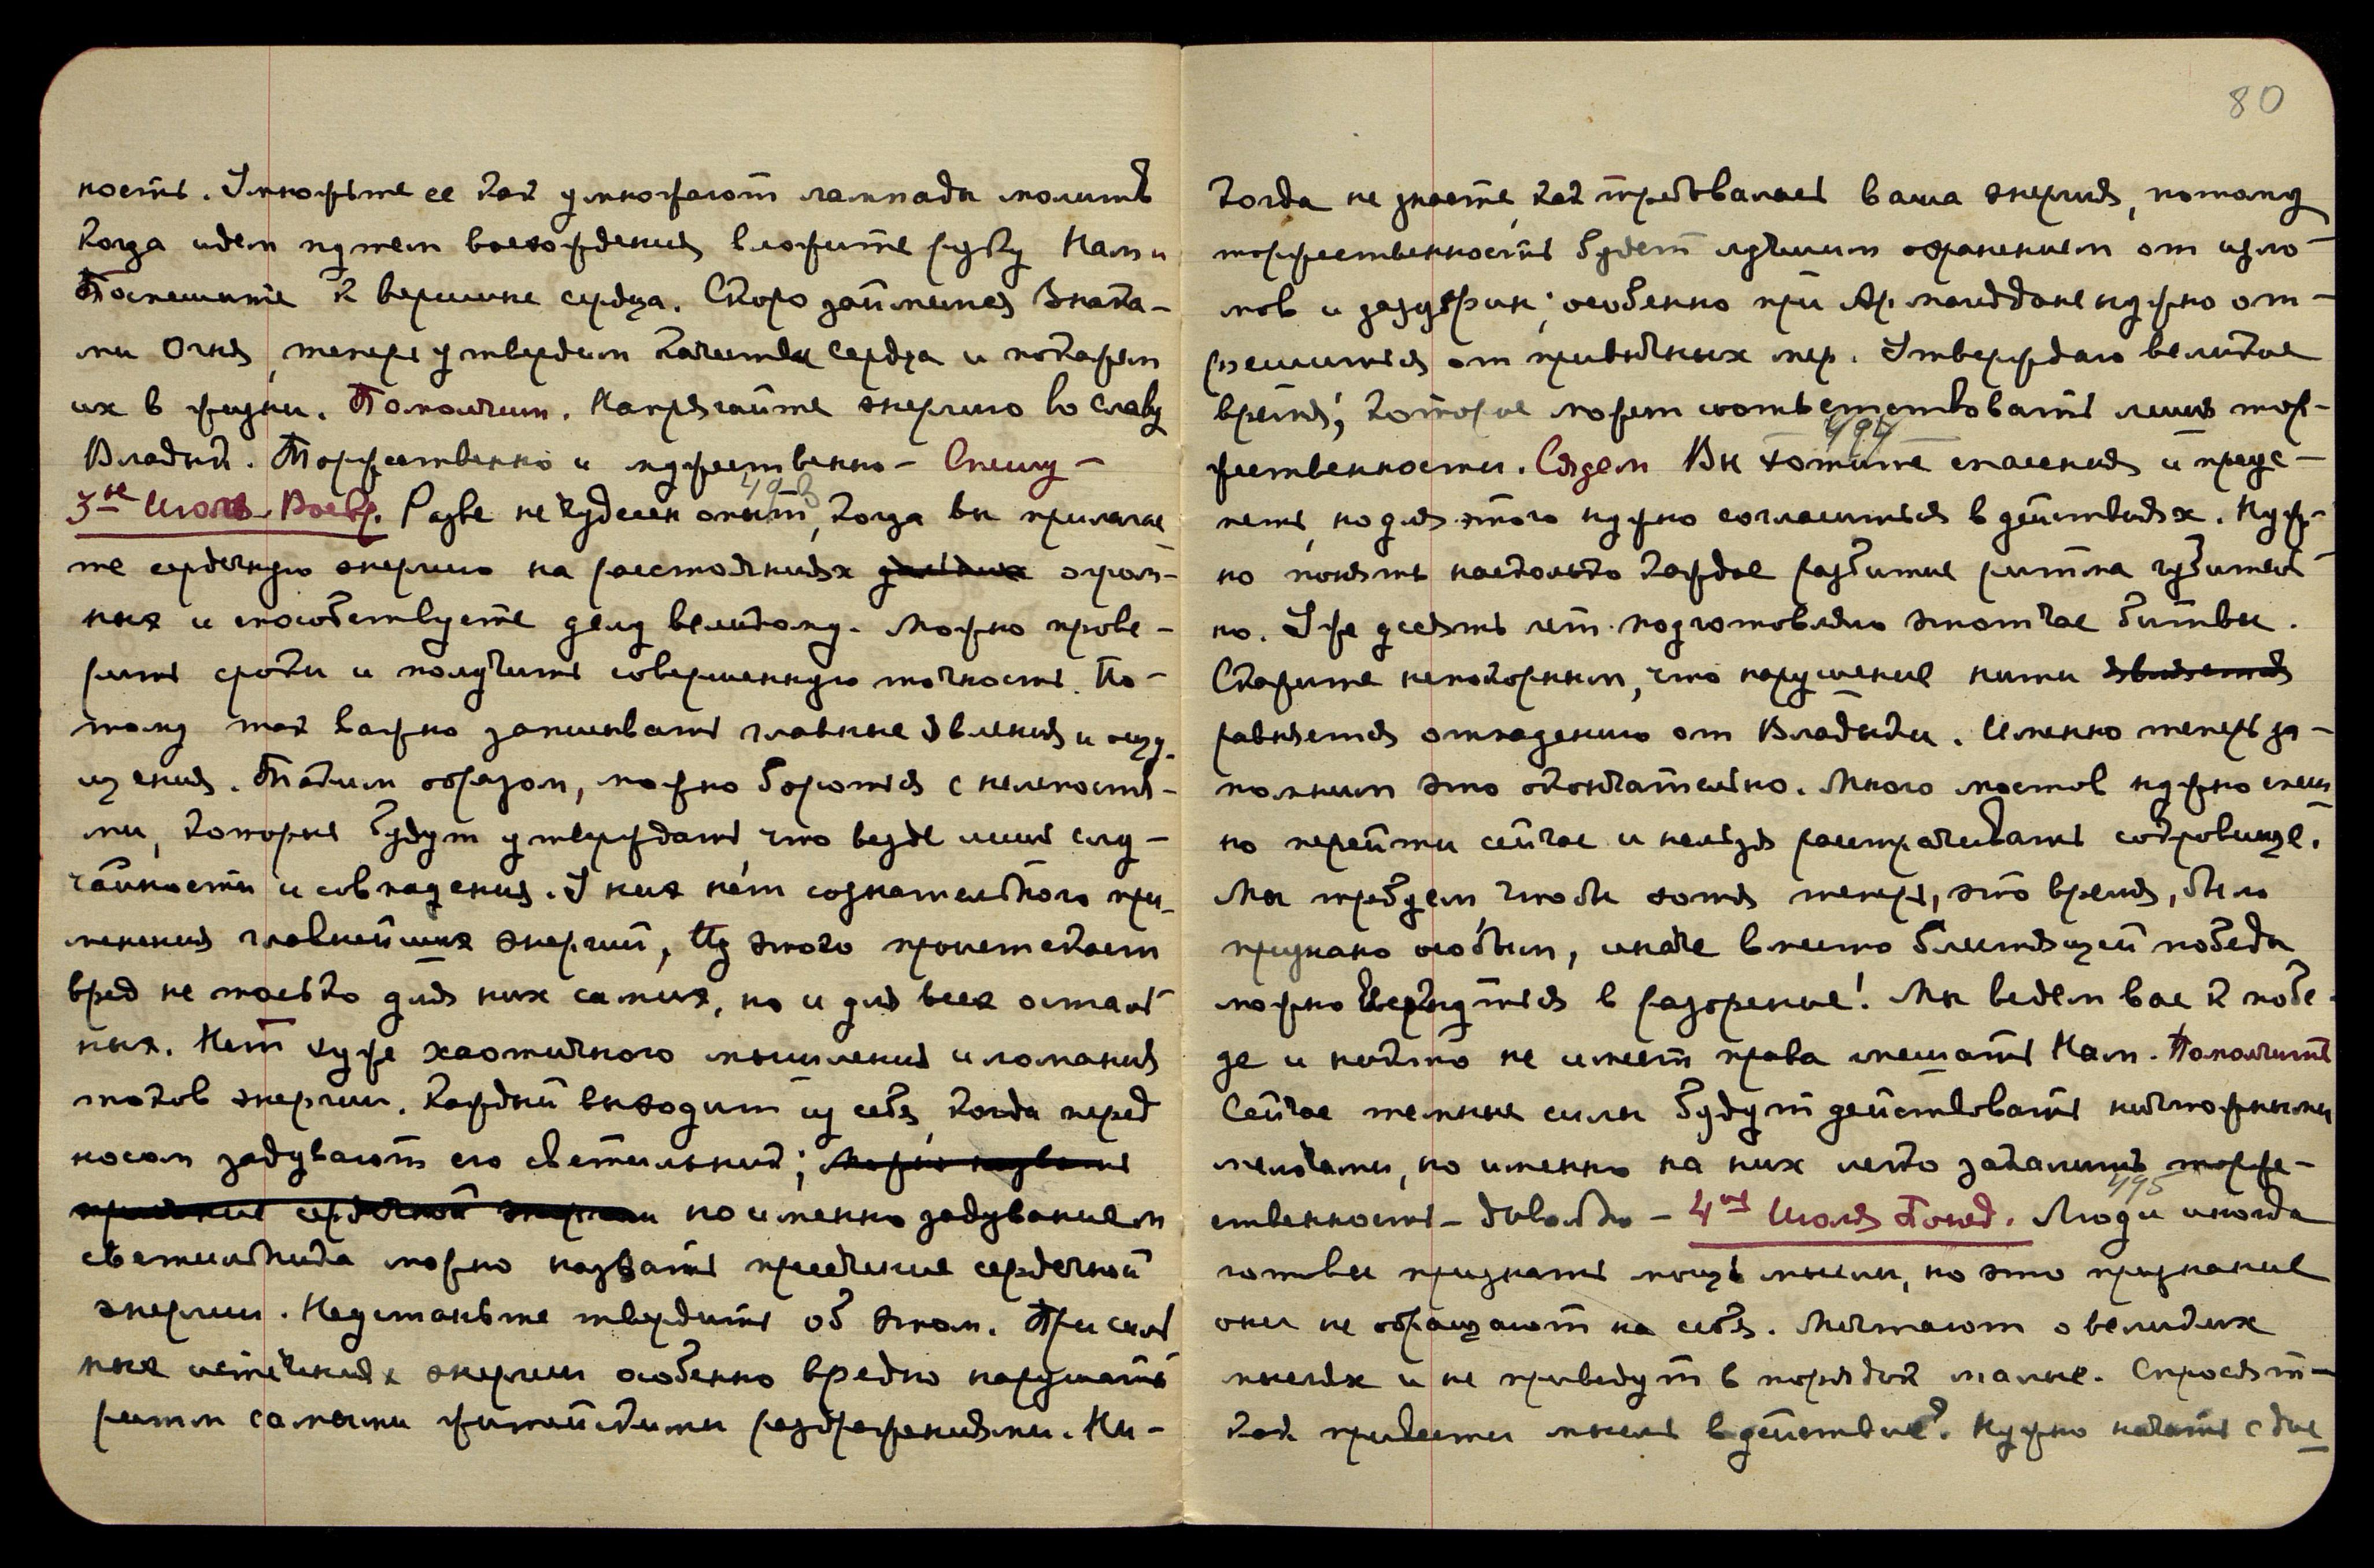 ность. Умножьте ее как умножают лампады молитв
когда идем путем восхождения вложите руку Нам и
Поспешите к вершине сердца. Скоро займемся Знака-
ми Огня, теперь утвердим качества сердца и покажем
их в жизни. Помолчим. Напрягайте энергию во славу
Владык. Торжественно и мужественно – Спешу –
493
3-ье Июля Воскр. Разве не чудесен опыт, когда вы прилагае
те сердечную энергию на расстояниях дальних огром-
ных и способствуете делу великому. Можно прове-
рить сроки и получить совершенную точность. По-
тому так важно записывать главные явления и ощу-
щения. Таким образом, можно бороться с нелепостя-
ми, которые будут утверждать, что везде лишь слу-
чайности и совпадения. У них нет сознательного при-
менения главнейших энергий, Из этого проистекает
вред не только для них самих, но и для всех осталь
ных. Нет хуже хаотичного мышления и ломания
токов энергии. Каждый выходит из себя, когда перед
носом задувают его светильник; Можно назвать
пресечение сердечной энергии но именно задуванием
светильника можно назвать пресечение сердечной
энергии. Не устаньте твердить об этом. При силь
ных истечениях энергии особенно вредно нарушать
ритм самыми житейскими раздражениями. Ни-
80
когда не знаете, как требовалась ваша энергия, потому
торжественность будет лучшим охранением от изло-
мов и зазубрин; особенно при Армагеддоне нужно от-
решиться от привычных мер. Утверждаю великое
время, которое может соответствовать лишь тор-
494
жественности. Сядем Вы хотите спасения и преус-
петь, но для этого нужно согласиться в действиях. Нуж-
но понять насколько каждое разбитие ритма губитель
но. Уже десять лет подготовляю этот час битвы.
Скажите непокорным, что нарушение нити является
равняется отпадению от Владыки. Именно теперь за-
помним это окончательно. Много мостов нужно спеш
но перейти сейчас и нельзя растрачивать сокровище.
Мы требуем, чтобы хотя теперь, это время, было
признано особым, иначе вместо блистящей победы
можно ввергнуться в разорение! Мы ведем вас к побе-
де и никто не имеет права мешать Нам. Помолчите
Сейчас темные силы будут действовать ничтожными
мелочами, но именно на них легко закалить торже-
495
ственность – довольно – 4-ое Июля Понед. Люди иногда
готовы признать мощь мысли, но это признание
они не обращают на себя. Мечтают о великих
мыслях и не приведут в порядок малые. Спросят –
как привести мысль в действие? Нужно начать с дис